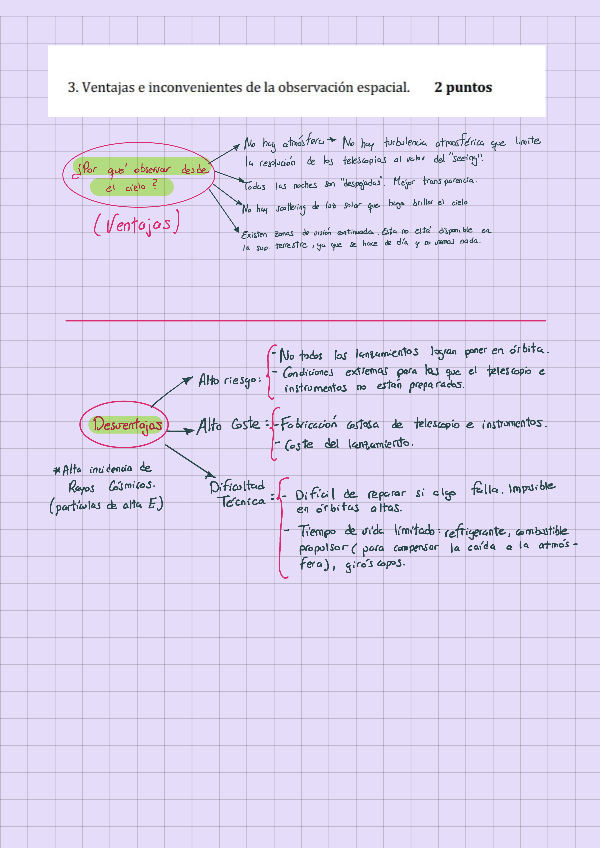 3. Ventajas e inconvenientes de la observación espacial. 2 puntos
¿Por qué observar desde
el cielo?
(Ventajas)
No hay atmósfera → No hay turbulencia atmosférica que limite
la resolución de los telescopios al valor del "seeing".
Todas las noches son "despejadas". Mejor transparencia.
No hay scattering de luz solar que haga brillar el cielo
Existen zonas de visión continuada. Esta no está disponible en
la sup. terrestre, ya que se hace de día y no vemos nada.
Desventajas
* Alta incidencia de
Rayos Cósmicos.
(partículas de alta E)
Alto riesgo:
- No todos los lanzamientos logran poner en órbita.
- Condiciones extremas para las que el telescopio e
instrumentos no están preparados.
Alto Coste:
- Fabricación costosa de telescopio e instrumentos.
- Coste del lanzamiento.
Dificultad
Técnica:
- Difícil de reparar si algo falla. Imposible
en órbitas altas.
- Tiempo de vida limitado: refrigerante, combustible
propulsor (para compensar la caída a la atmós-
fera), giróscopos.